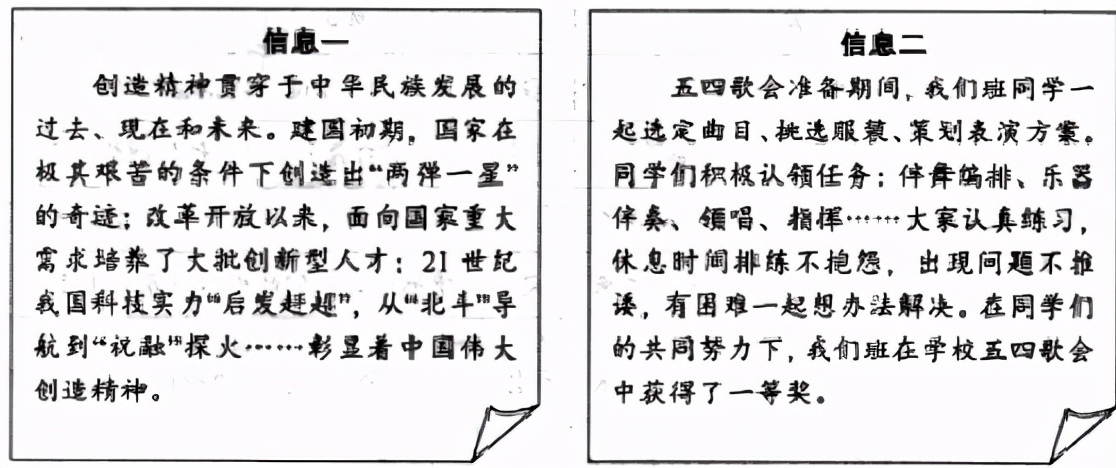 信息一
创造精神贯穿于中华民族发展的
过去、现在和未来。建国初期，国家在
极其艰苦的条件下创造出“两弹一星”
的奇迹；改革开放以来，面向国家重大
需求培养了大批创新型人才；21世纪
我国科技实力“后发赶超”，从“北斗”导
航到“祝融”探火……彰显着中国伟大
创造精神。
信息二
五四歌会准备期间，我们班同学一
起选定曲目、挑选服装、策划表演方案。
同学们积极认领任务：伴舞编排、乐器
伴奏、领唱、指挥……大家认真练习，
休息时间排练不抱怨，出现问题不推
诿，有困难一起想办法解决。在同学们
的共同努力下，我们班在学校五四歌会
中获得了一等奖。